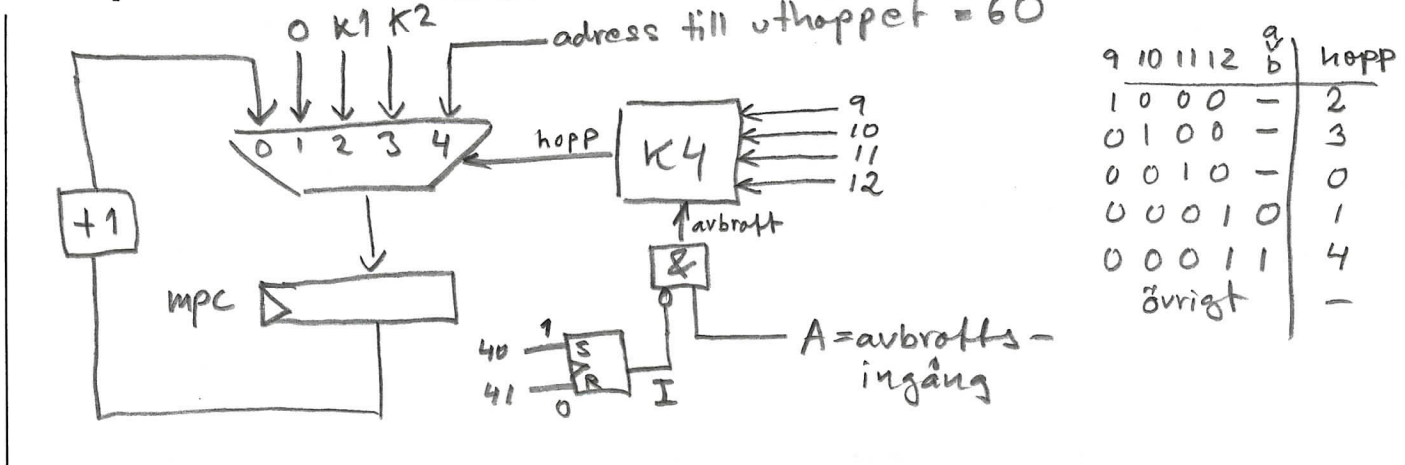 0 K1 K2
adress till uthoppet = 60
0 1 2 3 4
hopp
K4
9
10
11
12
avbrott
+1
&
mpc
40 1 S
41 0 R
I
A = avbrotts-
ingång
9 10 11 12 a v b hopp
1 0 0 0 - 2
0 1 0 0 - 3
0 0 1 0 - 0
0 0 0 1 0 1
0 0 0 1 1 4
övrigt -